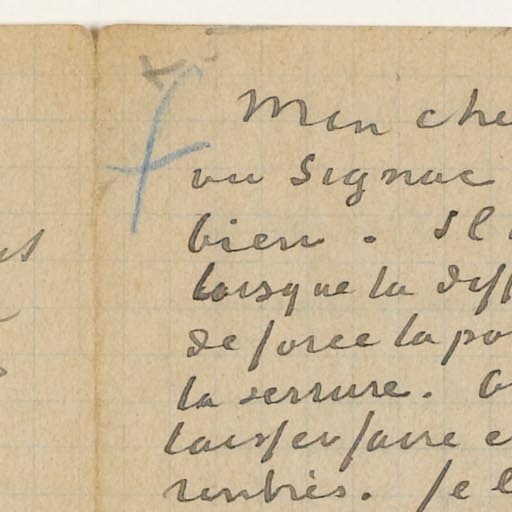 Mon che
vu Signac
bien. Il
lorsque la diff
de force la po
la serrure. O
laisser faire e
rentrés. Je l